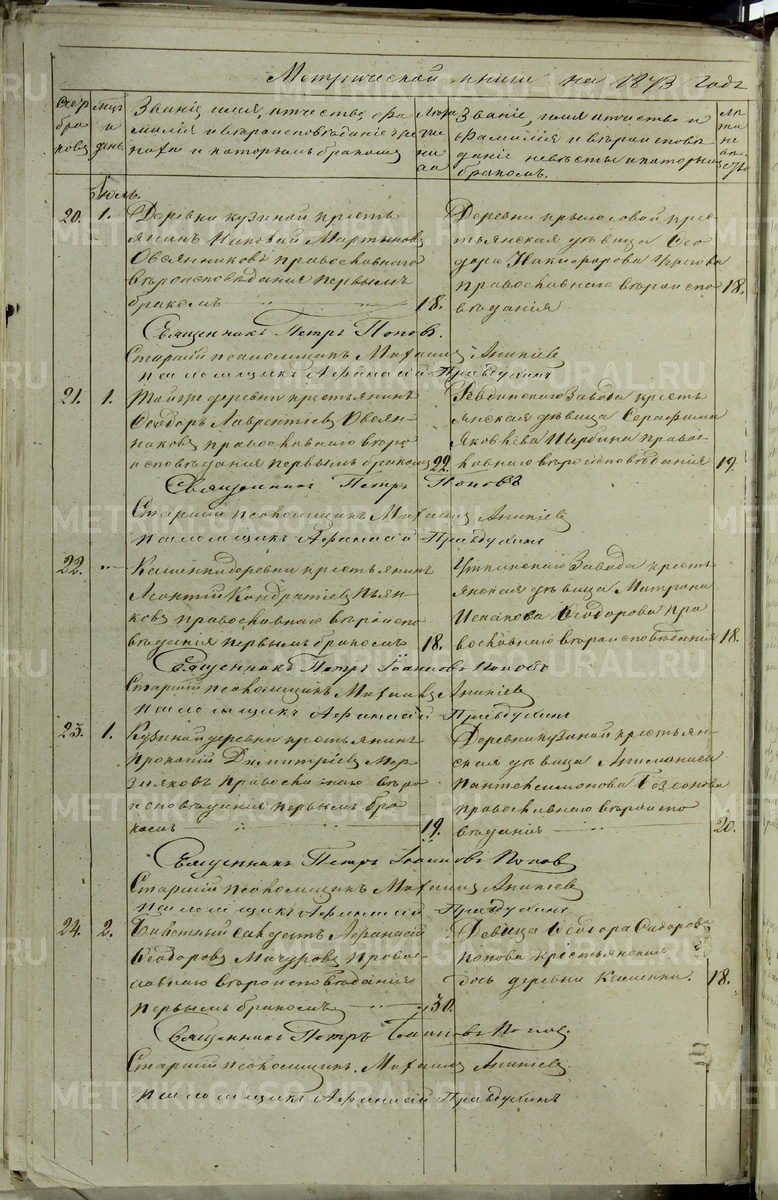 Метрической книги на 1873 годъ
Счетъ браковъ
Мцъ и день
Званіе, имя, отчество, фа
милія и вѣроисповѣданіе же
ниха и которымъ бракомъ
Лѣта жениха
Званіе, имя отчество и
фамилія и вѣроисповѣ
даніе невѣсты и которымъ
бракомъ.
Лѣта невѣсты
Іюль.
20. 1.
Деревни кузиной кресть
янинъ Николай Мартыновъ
Овсянниковъ православнаго
вѣроисповѣданія первымъ
бракомъ
18.
Деревни крылосовой крес
тьянская дѣвица Ѳео
дора Никифорова
православнаго вѣроиспо
вѣданія
18.
Священникъ Петръ Поповъ.
Старшій псаломщикъ Михаилъ Ананіевъ
псаломщикъ Афанасій Правдухинъ
21. 1.
Тойже деревни крестьянинъ
Ѳеодоръ Лаврентіевъ Овсян
никовъ православнаго вѣро
исповѣданія первымъ бракомъ
22.
Завода кресть
янская дѣвица Серафима
Яковлева Щербина право
славнаго вѣроисповѣданія
19.
Священникъ Петръ Поповъ
Старшій псаломщикъ Михаилъ Ананіевъ
псаломщикъ Афанасій Правдухинъ
22. "
Каменки деревни крестьянинъ
Леонтій Кондратіевъ Пьян
ковъ православнаго вѣроиспо
вѣданія первымъ бракомъ
18.
Уткинскаго Завода кресть
янская дѣвица Матрона
Исаакова Ѳеодорова пра
вославнаго вѣроисповѣданія
18.
Священникъ Петръ Іоанновъ Поповъ
Старшій псаломщикъ Михаилъ Ананіевъ
псаломщикъ Афанасій Правдухинъ
23. 1.
Кузиной деревни крестьянинъ
Прокопій Димитріевъ Мер
зляковъ православнаго вѣро
исповѣданія первымъ бра
комъ
19.
Деревни кузиной крестьян
ская дѣвица
Пантелеимонова
православнаго вѣроиспо
вѣданія
20.
Священникъ Петръ Іоанновъ Поповъ
Старшій псаломщикъ Михаилъ Ананіевъ
псаломщикъ Афанасій Правдухинъ
24. 2.
Билетный солдатъ Афанасій
Ѳеодоровъ Мичуровъ право
славнаго вѣроисповѣданія
первымъ бракомъ
30.
Девица Ѳеодора Сидорова
Попова крестьянская
дочь деревни Каменки.
18.
Священникъ Петръ Іоанновъ Поповъ.
Старшій псаломщикъ Михаилъ Ананіевъ
псаломщикъ Афанасій Правдухинъ
METRIKI.CASSO-URAL.RU